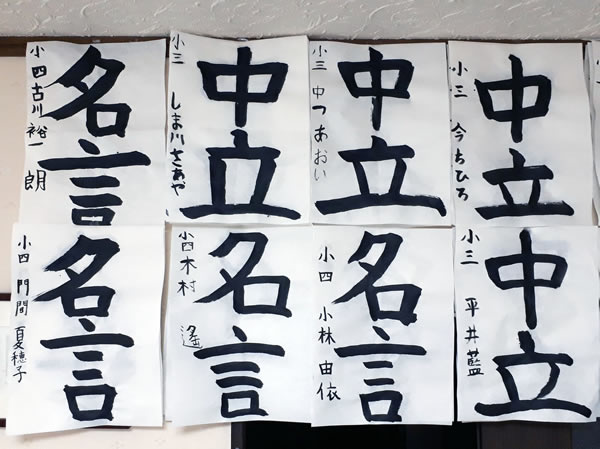 名言
小四 古川 裕一朗
中立
小三 しま川さあや
中立
小三 中つ あおい
中立
小三 今 ちひろ
名言
小四 門間 夏穂子
名言
小四 木村 遥
名言
小四 小林 由依
中立
小三 平井 藍